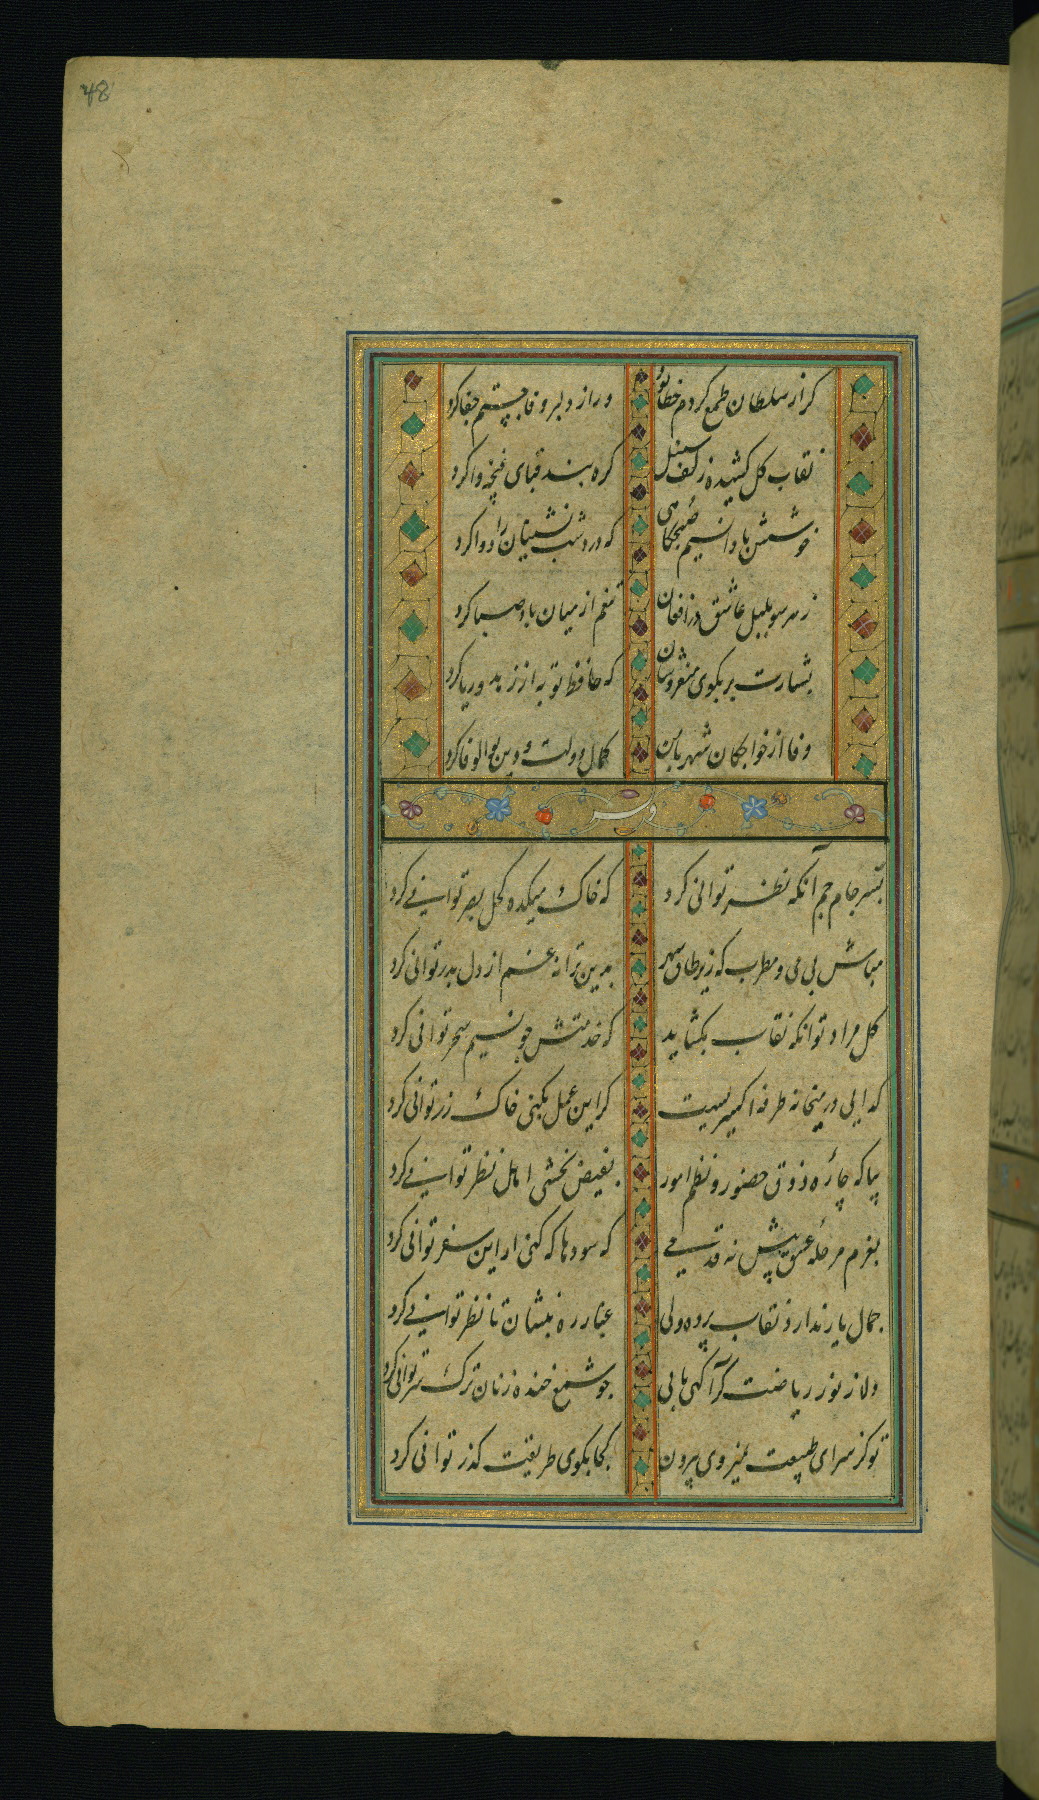 48
گر از سلطان طمع کردم خطا بود
ور از دلبر وفا جستم جفا کرد
نقاب گل کشیده زلف سنبل
گره بند قبای غنچه وا کرد
خوشش باد آن نسیم صبحگاهی
که درد شب نشینان را دوا کرد
ز هر سو بلبل عاشق در افغان
تنعم از میان باد صبا کرد
بشارت بر بکوی میفروشان
که حافظ توبه از زهد و ریا کرد
وفا از خواجگان شهر با من
کمال دولت و دین بوالوفا کرد
وله
بسر جام جم آنگه نظر توانی کرد
که خاک میکده کحل بصر توانی کرد
مباش بی می و مطرب که زیر طاق سپهر
بدین ترانه غم از دل بدر توانی کرد
گل مراد تو آنگه نقاب بگشاید
که خدمتش چو نسیم سحر توانی کرد
گدایی در میخانه طرفه اکسیریست
گر این عمل بکنی خاک زر توانی کرد
بیا که چاره ذوق حضور و نظم امور
بفیض بخشی اهل نظر توانی کرد
بعزم مرحله عشق پیش نه قدمی
که سودها که کنی ار این سفر توانی کرد
جمال یار ندارد نقاب پرده ولی
غبار ره بنشان تا نظر توانی کرد
دلا ز نور ریاضت گر آگهی یابی
چو شمع خنده زنان ترک سر توانی کرد
تو کز سرای طبیعت نمیروی بیرون
کجا بکوی طریقت گذر توانی کرد